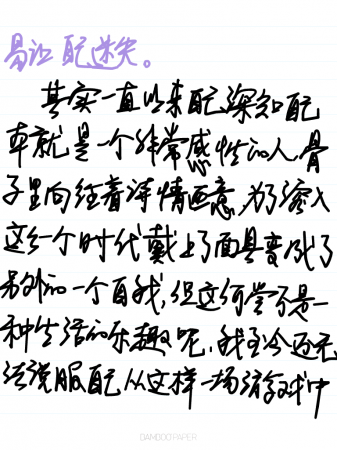 易让自己迷失。
其实一直以来自己深知自己
本就是一个非常感性的人,骨
子里向往着诗情画意,为了溶入
这么一个时代戴上了面具变成了
另外的一个自我,但这何尝不是一
种生活的乐趣呢,我至今还无
法说服自己从这样一场游戏中